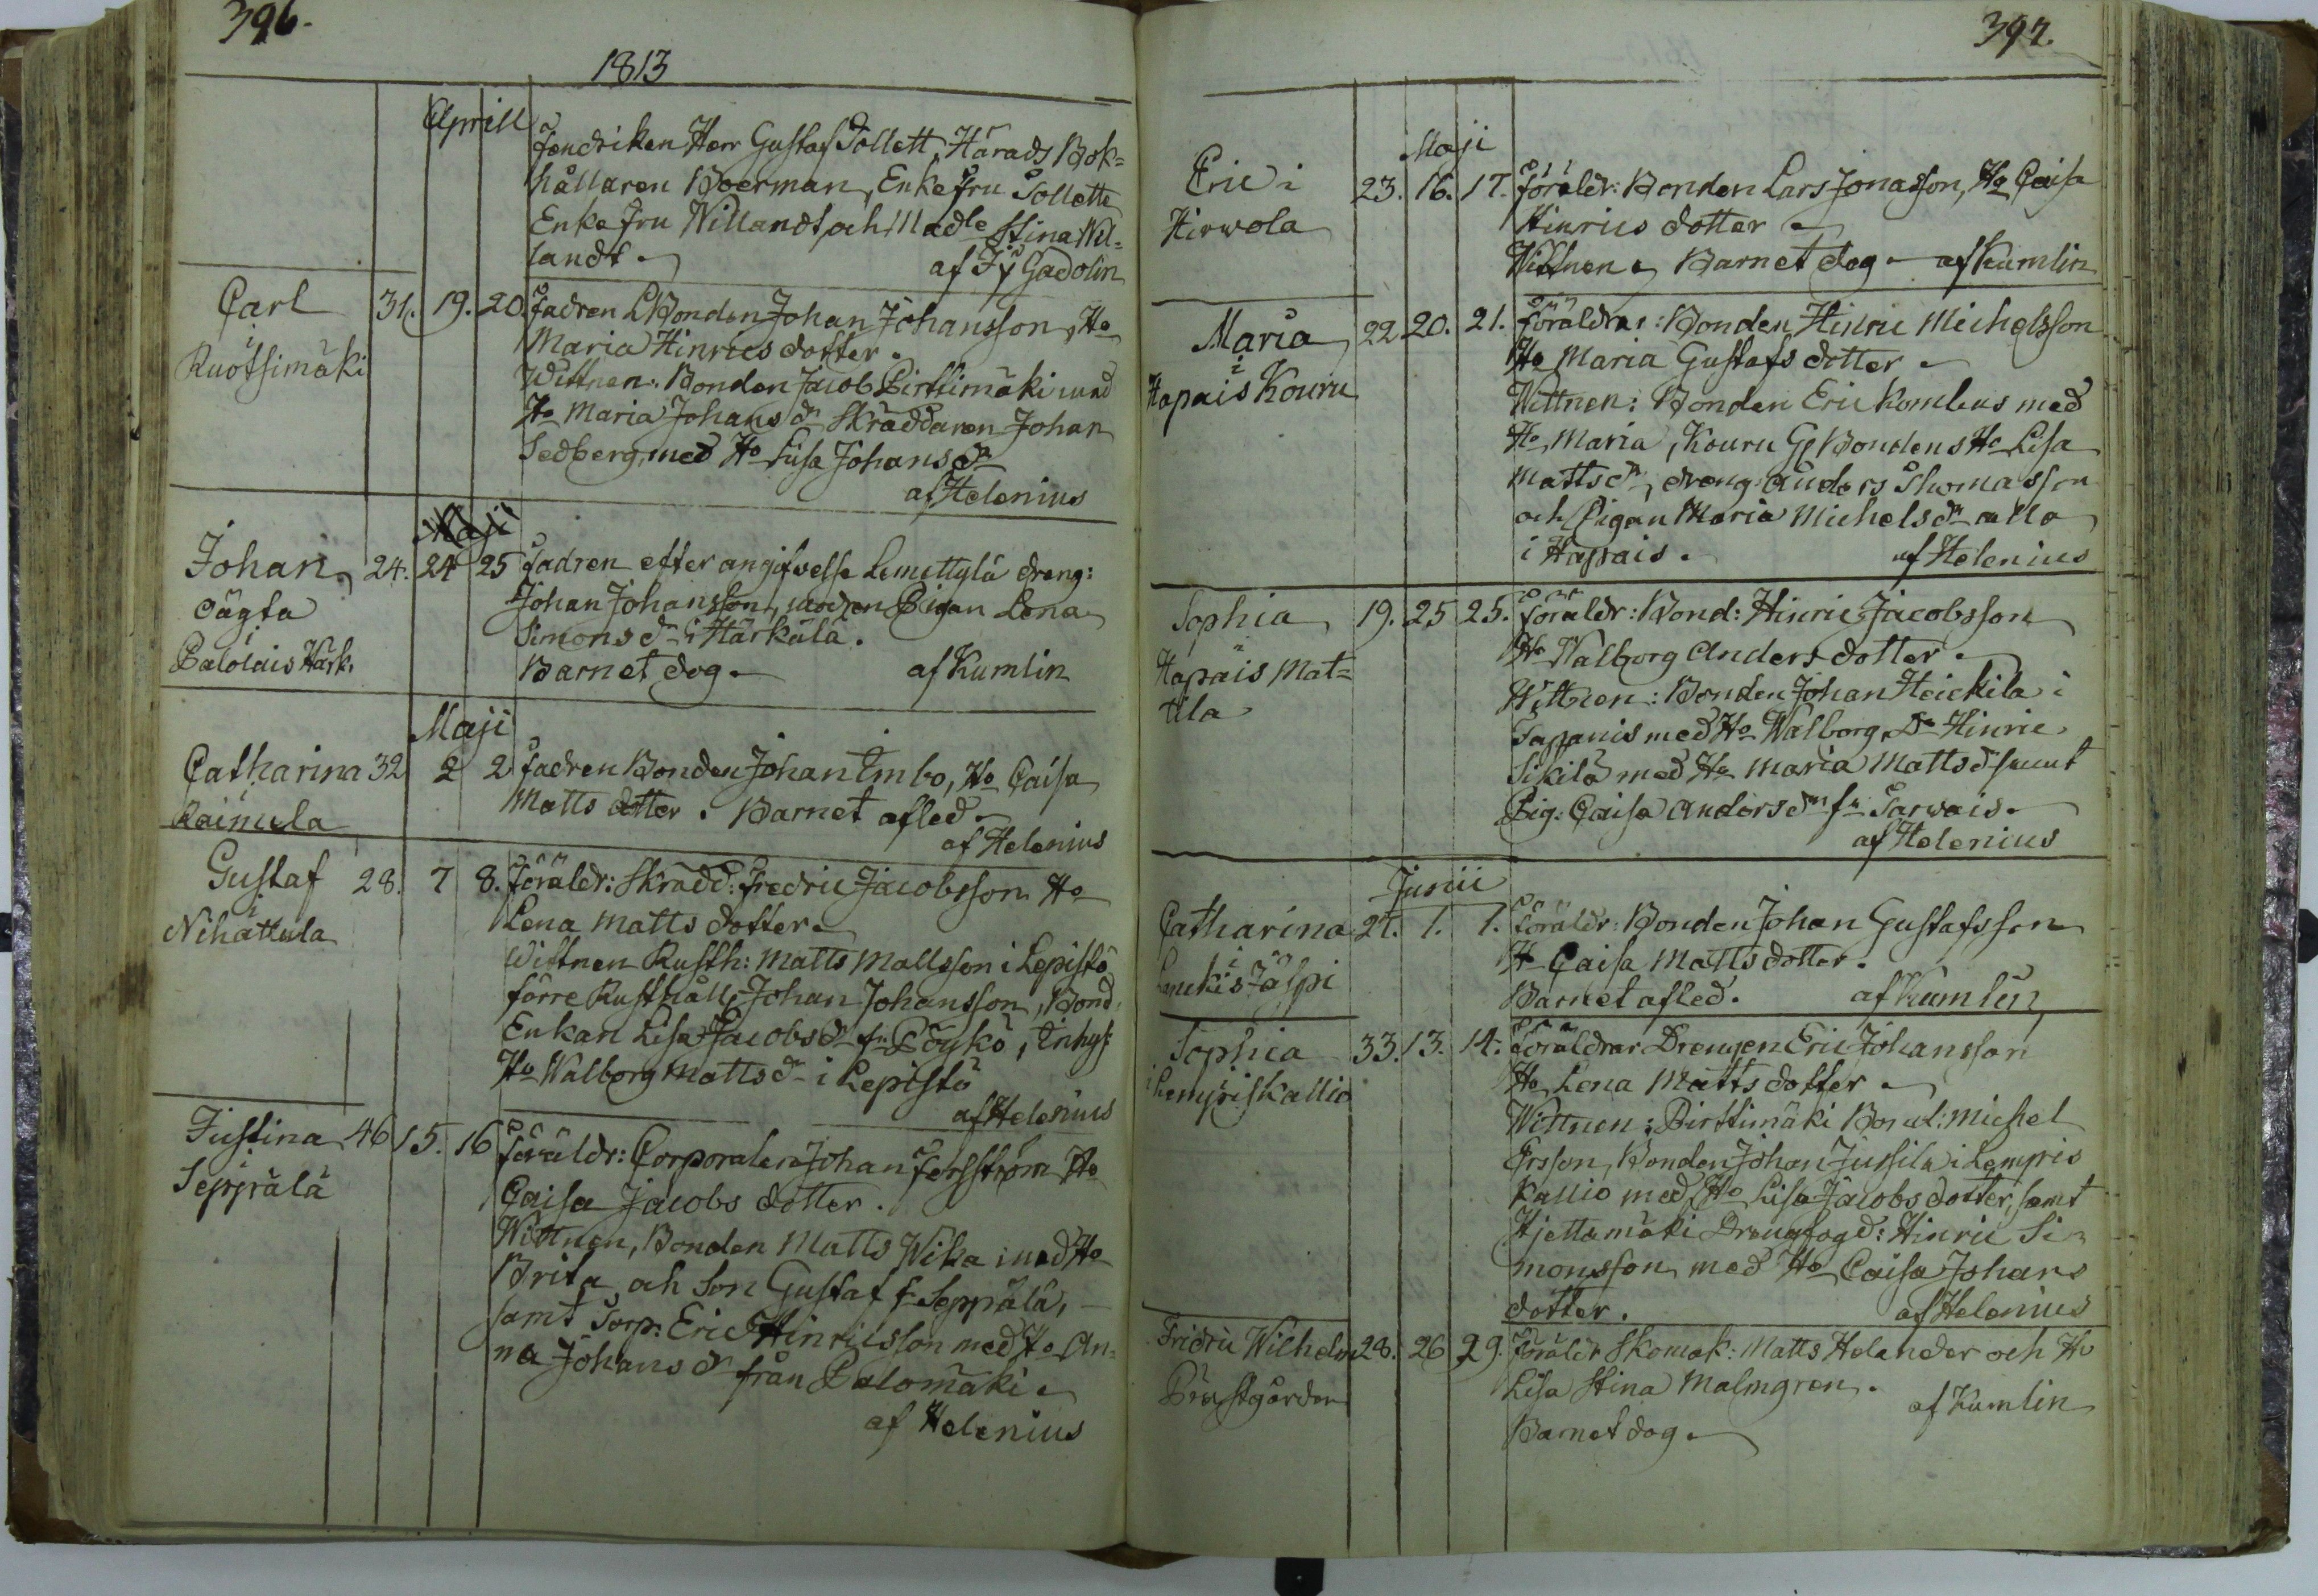 396.
1813
Aprill
Fendriken Herr Gustaf Tollett, Härads Bok=
hållaren Boerman, Enkefru Tollette
Enkefru Willandt, och Madle Stina Wil=
landt.
af Gadolin
Carl 31. 19. 20. Fadren Bonden Johan Johansson, Ho
i
Ruotsimäki
Maria Hinrics dotter.
Wittnen: Bonden Jacob Pirttimäki med
Ho Maria Johans dr Skräddaren Johan
Sedberg, med Ho Lisa Johans dr
af Helenius
Maji
Johan, 24. 24 25 Fadren efter angifvelse Lemettylä dreng:
oägta
i
Palolais Härk.
Johan Johansson, modren Pigan Lena
Simons dr i Härkälä.
Barnet dog. af Kumlin
Maji
Catharina 32 2 2 Fadren Bonden Johan Imbo, Ho Caisa
i
Raimela
Matts dotter. Barnet afled.
af Helenius
Gustaf 28. 7 8. Föräldr: Skrädd: Fredric Jacobsson Ho
i
Nihattula
Lena Matts dotter.
Wittnen Rusth: Matts Mattsson i Lepistö
förre Rusthåll. Johan Johansson, Bond.
Enkan Lisa Jacobs dr fr. Pöykö, Inhys:
Ho Walborg Matts dr i Lepistö
af Helenius
Justina 46 15. 16 Föräldr: Corporalen Johan Forsström Ho
i
Seppälä
Caisa Jacobs dotter.
Wittnen, Bonden Matts Wika med Ho
Brita och Son Gustaf fr Seppälä,
samt Torp: Eric Hinricsson med Ho An=
na Johans dr från Palomäki.
af Helenius
397.
Maji
Eric i 23. 16. 17. Föräldr: Bonden Lars Jonasson, Ho Caisa
Hirwola
Hinrics dotter
Wittnen Barnet dog. af Kumlin
Maria 22. 20. 21. Föräldrar: Bonden Hinric Michelsson
i
Hapais Kouru
Ho Maria Gustafs dotter.
Wittnen: Bonden Eric Kombus med
Ho Maria, Kouru Bondens Ho Lisa
Matts dr, dreng: Anders Thomasson
och Pigan Maria Michels dr alla
i Hapais. af Helenius
Sophia 19. 25 25. Föräldr: Bond: Hinric Jacobsson
Hapais Mat=
tila
Ho Walborg Anders dotter.
Wittnen: Bonden Johan Heickila i
Tappanis med Ho Walborg, Do Hinric
Sikilä med Ho Maria Matts dr samt
Pig: Caisa Anders dr fr Sarwais.
af Helenius
Junii
Catharina 27. 1. 1. Föräldr: Bonden Johan Gustafsson
i
Ho Caisa Matts dotter.
Barnet afled. af Kumlin
Sophia 33. 13. 14. Föräldrar Drengen Eric Johansson
i Lempis Kallio
Ho Lena Matts dotter.
Wittnen: Pirttimäki Bond: Michel
Ersson, Bonden Johan Jussila i Lempis
Kallio med Ho Lisa Jacobs dotter, samt
Hjettamäki Drengfogd: Hinric Si=
monsson med Ho Caisa Johans
dotter. af Helenius
Fridric Wilhelm 28. 26 29. Föräldr Skomak: Matts Helander och Ho
Prästgården
Lisa Stina Malmgren.
af Kumlin
Barnet dog.